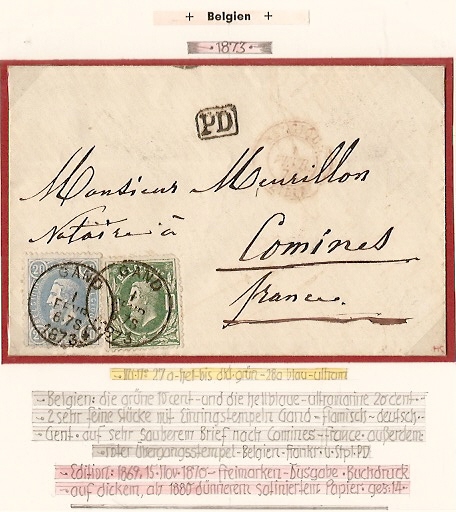 + Belgien +
· 1873 ·
PD
Monsieur Meurillon
Notaire à
Comines
france
GAND
1
FEVR
1873
GAND
1
· Mi:N: 27 a - hel - bis dkl. grün - 28a blau - ultram
· Belgien: die grüne 10 cent - und die hellblaue - ultramarine 20 cent ·
· 2 sehr feine Stücke mit Einringstempeln Gand - flämisch - deutsch
Gent · auf sehr sauberem Brief nach Comines - france · außerdem
roter Übergangsstempel - Belgien - frankr. u. Stpl. PD
· Edition: 1869, 15. Nov. 1870 - Freimarken - Ausgabe · Buchdruck
auf dickem, ab 1880 dünnerem satiniertem Papier · gez. 14 ·